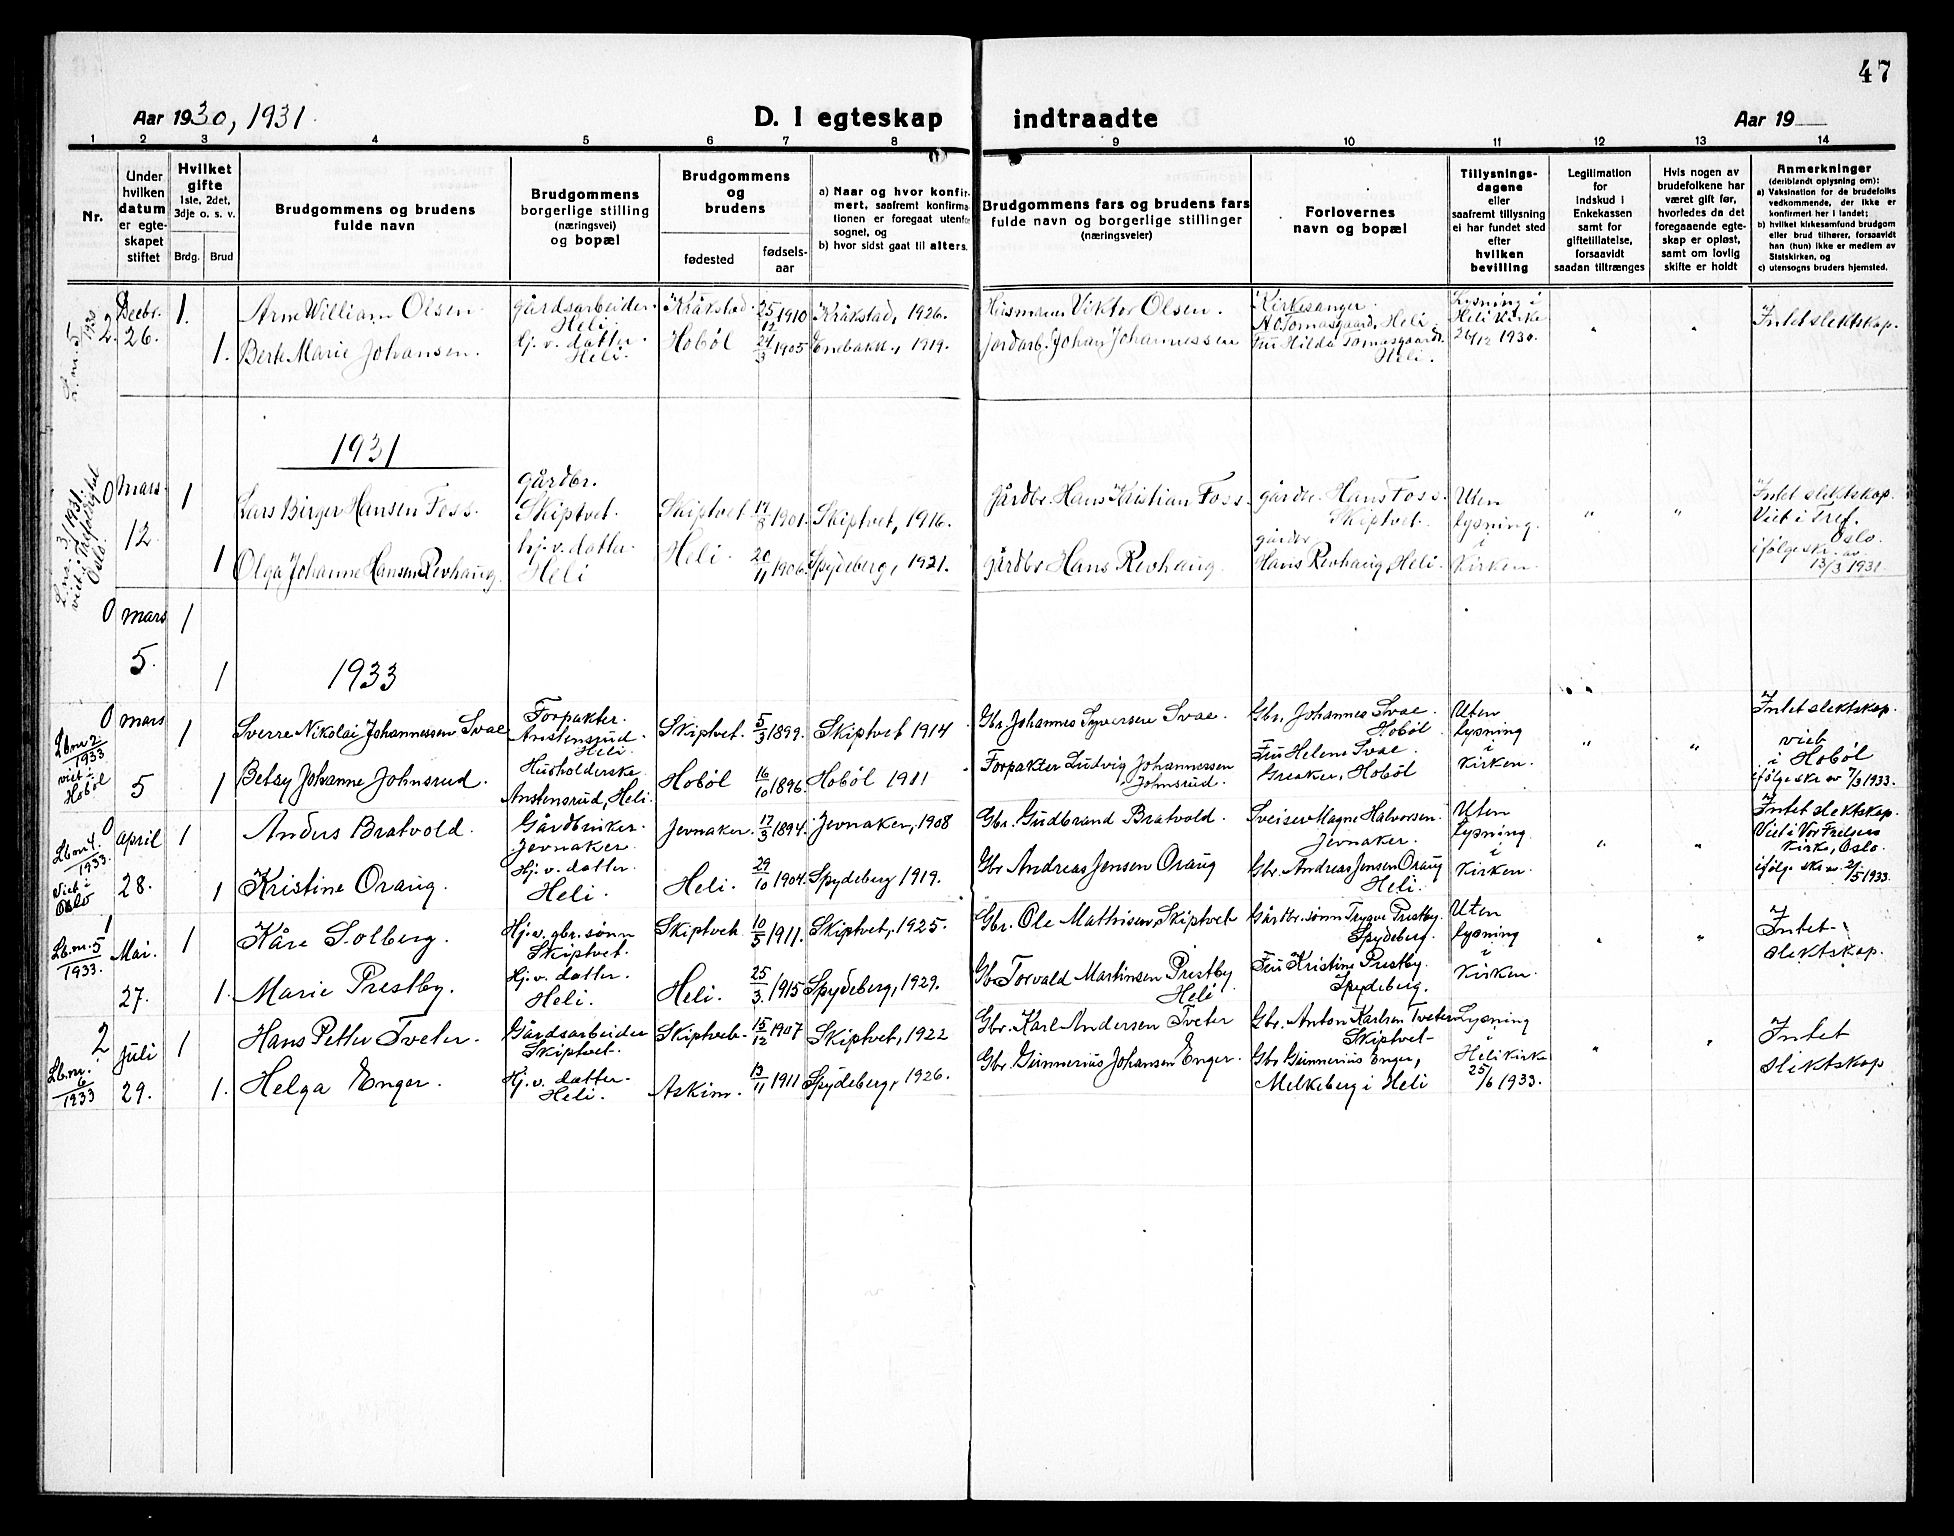 47
Aar 1930, 1931.
D. I egteskap indtraadte
Aar 19
1 2 3 4 5 6 7 8 9 10 11 12 13 14
Nr.
Under hvilken datum er egteskapet stiftet
Hvilket gifte
1ste, 2det, 3dje o. s. v.
Brdg. Brud
Brudgommens og brudens
fulde navn
Brudgommens
borgerlige stilling
(næringsvei)
og bopæl
Brudgommens
og
brudens
fødested
fødselsaar
a) Naar og hvor konfirmert, saafremt konfirmationen er foregaat utenfor sognet, og
b) hvor sidst gaat til alters.
Brudgommens fars og brudens fars
fulde navn og borgerlige stillinger
(næringsveier)
Forlovernes
navn og bopæl
Tillysningsdagene
eller
saafremt tillysning
ei har fundet sted
efter
hvilken
bevilling
Legitimation
for
indskud i
Enkekassen
samt for
giftetillatelse,
forsaavidt
saadan tiltrænges
Hvis nogen av
brudefolkene har
været gift før,
hvorledes da det
foregaaende egteskap er opløst,
samt om lovlig
skifte er holdt
Anmerkninger
(deriblandt oplysning om):
a) Vaksination for de brudefolks vedkommende, der ikke er konfirmert her i landet;
b) hvilket kirkesamfund brudgom eller brud tilhører, forsaavidt han (hun) ikke er medlem av Statskirken, og
c) utensogns bruders hjemsted.
L. nr. 5 1930
2. Decbr. 26. 1. Arne William Olsen gårdsarbeider. Heli. Kråkstad 25/12 1910 Kråkstad, 1926. Husmann Viktor Olsen. Kirkesanger A O Tomasgaard, Heli. Lysning i Heli kirke 26/12 1930. " " Intet slektskap.
1. Berte Marie Johansen. Hj. v. datter. Heli. Hobøl 24/3 1905 Enebakk, 1919. Jordarb. Johan Johannessen Fru Hilda Tomasgaard. Heli.
1931
L. nr. 3/1931. viet i Trefoldighet Oslo.
0 mars 12. 1 Lars Birger Hansen Foss. gårdbr. Skiptvet. Skiptvet 1901. Skiptvet, 1916. Gårdbr. Hans Kristian Foss. gårdbr. Hans Foss. Skiptvet. Uten lysning i Kirken. " " Intet slektskap. Viet i Tref. Oslo. ifølge skr. av 13/3 1931
1 Olga Johanne Hansen Revhaug. hj. v. datter. Heli Heli. 20/11 1906. Spydeberg, 1921. Gårdbr. Hans Revhaug. gårdbr Hans Revhaug, Heli.
0 mars 5. 1
1
1933
Lb. nr 2. 1933 viet i Hobøl
0 mars 5 1 Sverre Nikolai Johannessen Svae Forpakter. Anstensrud Heli. Skiptvet. 5/3 1899. Skiptvet 1914. Gbr. Johannes Syversen Svae. Gbr. Johannes Svae. Hobøl Uten lysning i Kirken. " " Intet slektskap. viet i Hobøl ifølge skr av 7/3 1933.
1 Betsy Johanne Johnsrud. Husholderske Anstensrud, Heli. Hobøl 16/10 1896. Hobøl 1911 Forpakter Ludvig Johannessen Johnsrud. Fru Helene Svae. Greaker, Hobøl
Lb. nr 4. 1933. Viet i Oslo
0 april 28. 1 Anders Bratvold. Gårdbruker. Jevnaker. Jevnaker. 17/3 1894. Jevnaker, 1908 Gbr. Gudbrand Bratvold. Sveiser Magne Halvorsen. Jevnaker. Uten lysning i Kirken. " " Intet slektskap. Viet i Vor Frelsers Kirke, Oslo. ifølge skr av 2/5 1933.
1 Kristine Oraug. Hj. v. datter. Heli. Heli. 29/10 1904. Spydeberg 1919. Gbr Andreas Jensen Oraug Gbr. Andreas Jensen Oraug Heli.
Lb. nr. 5 1933.
1 Mai. 27. 1 Kåre Solberg. Hj. v. gbr. sønn Skiptvet. Skiptvet. 10/5 1911. Skiptvet, 1925. Gbr. Ole Mathisen, Skiptvet Gårdbr. sønn Trygve Prestby. Spydeberg. Uten lysning i Kirken. " " Intet slektskap.
1. Marie Prestby. Hj. v. datter. Heli. Heli. 25/3. 1915 Spydeberg, 1929. Gbr Torvald Martinsen Prestby Heli Fru Kristine Prestby. Spydeberg.
Lb. nr. 6 1933
2 juli 29. 1 Hans Petter Tveter. Gårdsarbeider Skiptvet. Skiptvet. 15/12 1907 Skiptvet, 1922 Gbr. Karl Andersen Tveter Gbr. Anton Karlsen Tveter Skiptvet Lysning i Heli kirke 25/6 1933. " " Intet slektskap
1. Helga Enger. Hj. v. datter. Heli. Askim. 13/11 1911 Spydeberg, 1926. Gbr. Gunnerius Johansen Enger. Gbr Gunnerius Enger, Melkeberg i Heli